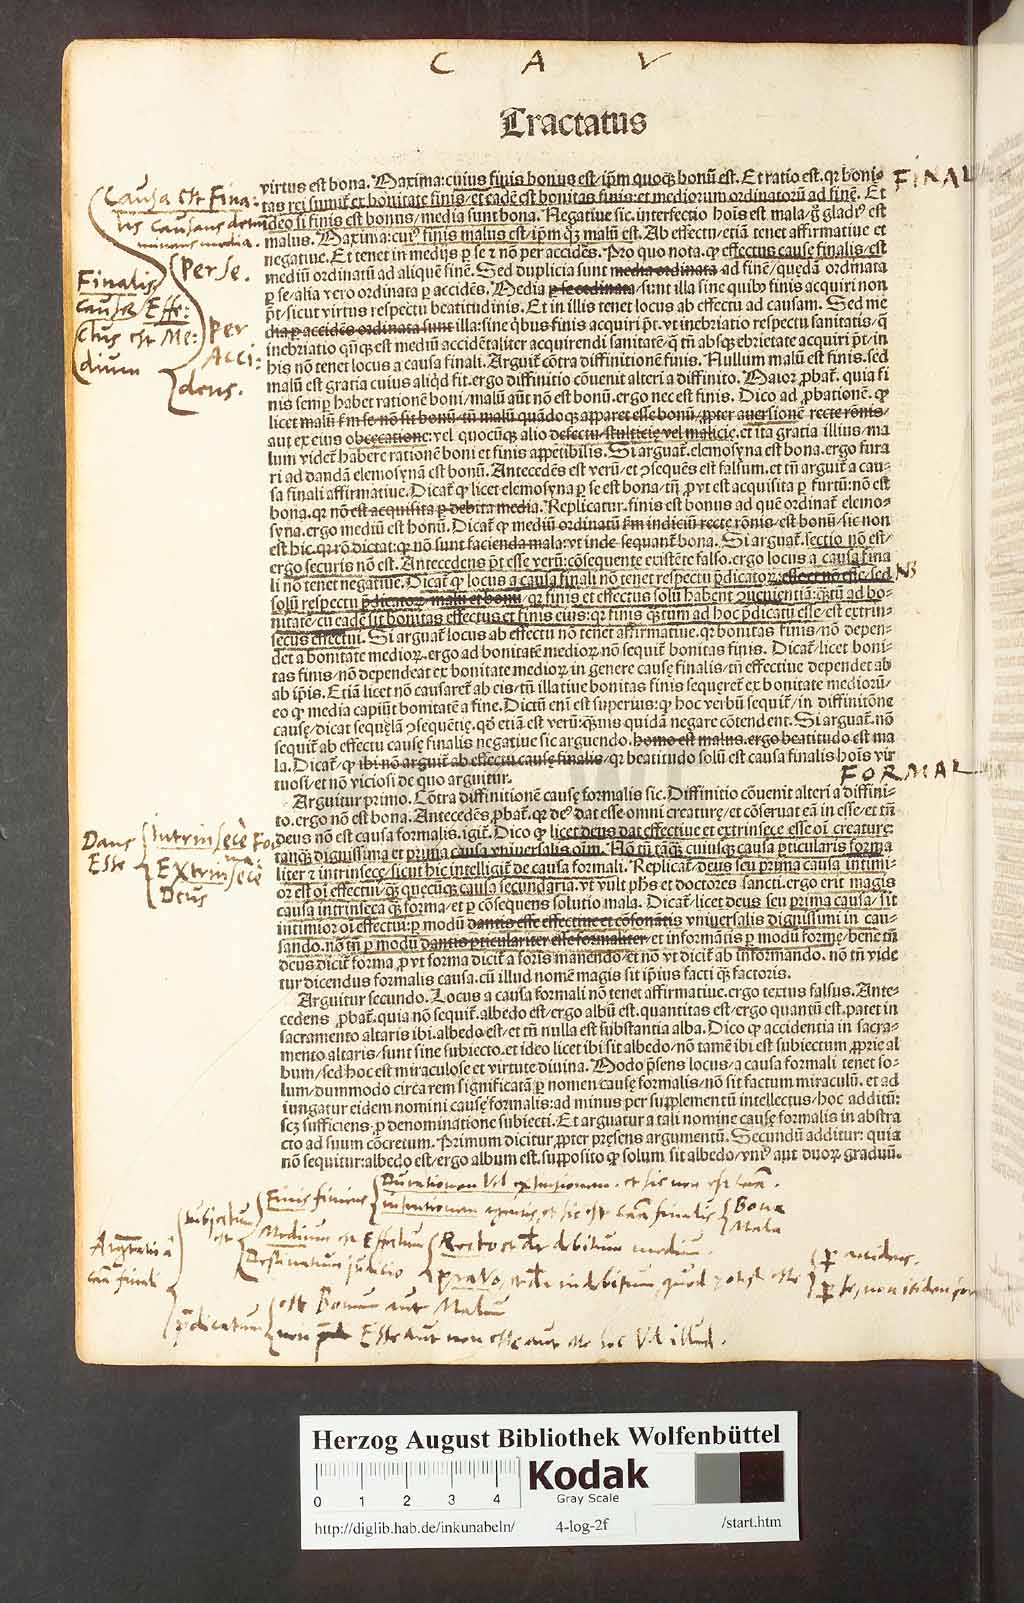 C A V
Tractatus
virtus est bona. Maxima: cuius finis bonus est/ ip̄m quoqꝫ bonū est. Et ratio est. qꝛ boni⸗
tas rei sumit̄ ex bonitate finis/ et eadē est bonitas finis: et mediorum ordinatorū ad finē. Et
ideo si finis est bonus/ media sunt bona. Negatiue sic. interfectio hoīs est mala/ g̊ gladi⁹ est
malus. Maxima: cui⁹ finis malus est/ ip̄m qꝫ malū est. Ab effectu/ etiā tenet affirmatiue et
negatiue. Et tenet in medijs ꝑ se ⁊ nō per accidēs. Pro quo nota. ꝙ effectus cause finalis/ est
mediū ordinatū ad aliquē finē. Sed duplicia sunt media ordinata ad finē/ quędā ordinata
ꝑ se/ alia vero ordinata ꝑ accidēs. Media ꝑ se ordinata/ sunt illa sine quib⁹ finis acquiri non
pt̄/ sicut virtus respectu beatitudinis. Et in illis tenet locus ab effectu ad causam. Sed me
dia ꝑ accidēs ordinata sunt illa: sine q̇bus finis acquiri pt̄. vt inebriatio respectu sanitatis/ q̄
inebriatio qn̄qꝫ est mediū accidētaliter acquirendi sanitatē/ q̄ tn̄ absqꝫ ebrietate acquiri pt̄/ in
his nō tenet locus a causa finali. Arguit̄ cōtra diffinitionē finis. Nullum malū est finis. sed
malū est gratia cuius aliq̇d fit. ergo diffinitio cōuenit alteri a diffinito. Maior ꝓbat̄. quia fi
nis semꝑ habet rationē boni/ malū aūt nō est bonū. ergo nec est finis. Dico ad ꝓbationē. ꝙ
licet malū ẜm se nō sit bonū/ tn̄ malū quādoqꝫ apparet esse bonū/ ꝓpter auersionē recte rōnis/
aut ex eius obcecatione: vel quocūqꝫ alio defectu/ stulticię vel malicię. et ita gratia illius/ ma
lum videt̄ habere rationē boni et finis appetibilis. Si arguat̄. elemosyna est bona. ergo fura
ri ad dandā elemosynā est bonū. Antecedēs est verū/ et ꝯsequēs est falsum. et tn̄ arguit̄ a cau⸗
sa finali affirmatiue. Dicat̄ ꝙ licet elemosyna ꝑ se est bona/ tn̄ ꝓ vt est acquisita ꝑ furtū: nō est
bona. qꝛ nō est acquisita ꝑ debita media. Replicatur. finis est bonus ad quē ordinat̄ elemo⸗
syna. ergo mediū est bonū. Dicat̄ ꝙ mediū ordinatū ẜm indiciū recte rōnis/ est bonū/ sic non
est hic. qꝛ rō dictat: ꝙ nō sunt facienda mala: vt inde sequant̄ bona. Si arguat̄. sectio nō est/
ergo securis nō est. Antecedens pt̄ esse verū: cōsequente existēte falso. ergo locus a causa fina
li nō tenet negatiue. Dicat̄ ꝙ locus a causa finali nō tenet respectu p̄dicatoꝝ: effect̄ nō esse/ sed
solū respectu p̄dicatoꝝ/ mali et boni. qꝛ finis et effectus solū habent ꝯuenientiā: qꝫtū ad bo⸗
nitatē/ cū eadē sit bonitas effectus et finis eius: qꝛ finis qꝫtum ad hoc p̄dicatū esse/ est extrin⸗
secus effectui. Si arguat̄ locus ab effectu nō tenet affirmatiue. qꝛ bonitas finis/ nō depen⸗
det a bonitate medioꝝ. ergo ad bonitatē medioꝝ nō sequit̄ bonitas finis. Dicat̄/ licet boni⸗
tas finis/ nō dependeat ex bonitate medioꝝ in genere causę finalis/ tn̄ effectiue dependet ab
ab ip̄is. Etiā licet nō causaret̄ ab eis/ tn̄ illatiue bonitas finis sequeret̄ ex bonitate mediorū/
eo ꝙ media capiūt bonitatē a fine. Dictū eni est superius: ꝙ hoc verbū sequit̄/ in diffinitōne
causę/ dicat sequelā ꝯsequētię. qd̄ etiā est verū: qꝫuis quidā negare cōtendent. Si arguat̄. nō
sequit̄ ab effectu causę finalis negatiue sic arguendo. homo est malus. ergo beatitudo est ma
la. Dicat̄/ ꝙ ibi nō arguit̄ ab effectu causę finalis/ qꝛ beatitudo solū est causa finalis hoīs vir
tuosi/ et nō viciosi de quo arguitur.
Arguitur primo. Cōtra diffinitionē causę formalis sic. Diffinitio cōuenit alteri a diffini⸗
to. ergo nō est bona. Antecedēs ꝓbat̄. qꝛ de⁹ dat esse omni creaturę/ et cōseruat eā in esse/ et tn̄
deus nō est causa formalis. igit̄. Dico ꝙ licet deus dat effectiue et extrinsece esse oī creature:
tanqꝫ dignissima et prima causa vniuersalis oīm. Nō tn̄ tāqꝫ cuiusqꝫ causa ꝑticularis forma
liter ⁊ intrinsece/ sicut hic intelligit̄ de causa formali. Replicat̄/ deus seu prima causa intimi⸗
or est oī effectui/ qꝫ quecūqꝫ causa secundaria. vt vult phs et doctores sancti. ergo erit magis
causa intrinseca qꝫ forma/ et ꝑ cōsequens solutio mala. Dicat̄/ licet deus seu prima causa/ sit
intimior oī effectui: ꝑ modū dantis esse effectiue et cōseruātis vniuersalis dignissimi in cau⸗
sando. nō tn̄ ꝑ modū dantis ꝑticulariter esse formaliter/ et informātis ꝑ modū formę/ bene tn̄
deus dicit̄ forma/ ꝓ vt forma dicit̄ a foris manendo/ et nō vt dicit̄ ab informando. nō tn̄ vide
tur dicendus formalis causa. cū illud nomē magis sit ip̄ius facti qꝫ factoris.
Arguitur secundo. Locus a causa formali nō tenet affirmatiue. ergo textus falsus. Ante⸗
cedens ꝓbat̄. quia nō sequit̄. albedo est/ ergo albū est. quantitas est/ ergo quantū est. patet in
sacramento altaris ibi. albedo est/ et tn̄ nulla est substantia alba. Dico ꝙ accidentia in sacra⸗
mento altaris/ sunt sine subiecto. et ideo licet ibi sit albedo/ nō tamē ibi est subiectum ꝓprie al
bum/ sed hoc est miraculose et virtute diuina. Modo p̄sens locus/ a causa formali tenet so⸗
lum/ dummodo circa rem significatā ꝑ nomen causę formalis/ nō sit factum miraculū. et ad
iungatur eidem nomini causę formalis: ad minus per supplementū intellectus/ hoc additū:
scꝫ sufficiens. ꝓ denominatione subiecti. Et arguatur a tali nomine causę formalis in abstra
cto ad suum cōcretum. Primum dicitur ꝓpter pręsens argumentū. Secundū additur: quia
nō sequitur: albedo est/ ergo album est. supposito ꝙ solum sit albedo/ vni⁹ aut duoꝝ graduū.
FINAL
NB
FORMAL
Causa est Fina:
lis causans determi
minans media.
Per se.
Finalis
causæ Effe:
ctus est Me:
dium
Per
Acci:
dens.
Dans
Esse
Intrinsecè For
ma:
Extrinsecè
Deus
subjectum
est
Finis finiens
Durationem Vel extensionem. et sic non est causa.
intentionem agentis, et sic est causa finalis
Bona
Mala
Medium est Effectum
Destinatum judicio
Recto et est debitum medium.
pravo, et est indebitum, quod potest esse
per accidens.
per se, non accidens
Argumentatio à
causa finali
prædicatum
est Bonum aut Malum
non Esse aut non esse aut esse hoc Vel illud.
Herzog August Bibliothek Wolfenbüttel
0 1 2 3 4
Kodak
Gray Scale
http://diglib.hab.de/inkunabeln/ 4-log-2f /start.htm